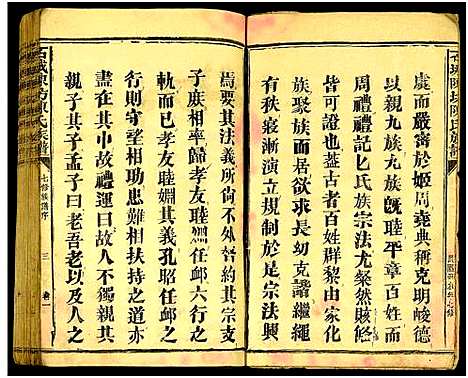 石城陳坊陳氏族譜
虞而嚴肅於姬周堯典稱克明峻德
以親九族九族旣睦平章百姓
周禮禮記
氏族宗法尤粲然賅
皆可證也蓋古者百姓群黎由家化
族聚族而居欲求長幼克諧繼繩
有秩寖漸演而立宗法於是宗法興
焉要其法義所尙不外咎約其宗支
子庶相率歸孝友睦婣任邺六行之
軌而已孝友睦婣其義孔昭任邺之
行則守望相助患難相扶持之實亦
盡在其中故禮運曰故人不獨親其
親子其子孟子曰老吾老以及人之
石城陳坊陳氏族譜
七修族譜序
三
卷一